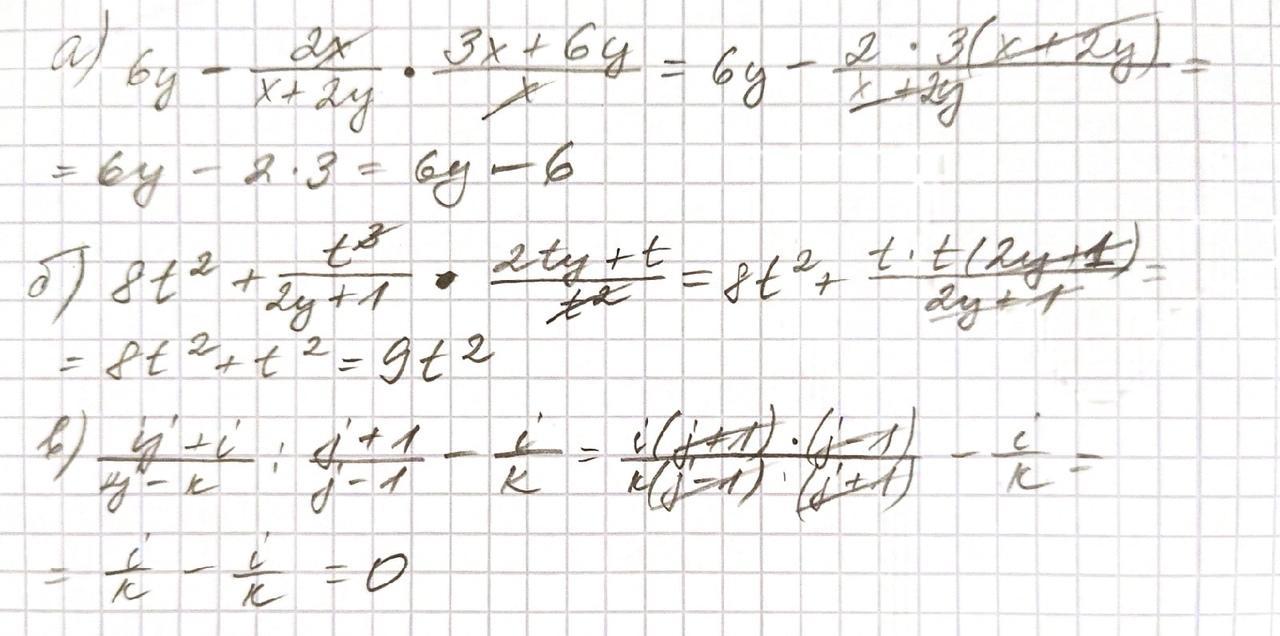 а) 6y - 2x/(x+2y) · (3x+6y)/x = 6y - 2·3(x+2y)/(x+2y) =
= 6y - 2·3 = 6y - 6
б) 8t² + t³/(2y+1) · (2ty+t)/t² = 8t² + t·t(2y+1)/(2y+1) =
= 8t² + t² = 9t²
в) (ij+i)/(kj-k) : (j+1)/(j-1) - i/k = i(j+1)·(j-1)/(k(j-1)·(j+1)) - i/k =
= i/k - i/k = 0